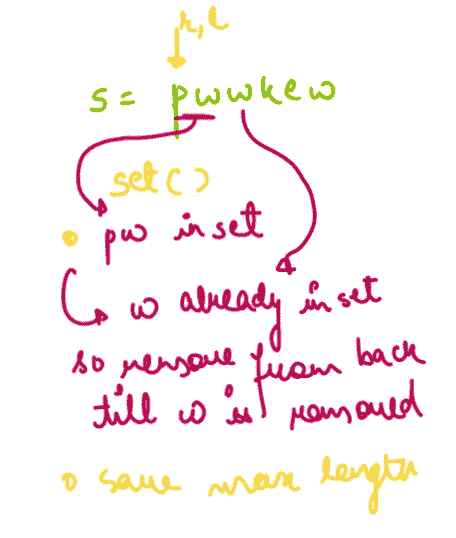 r,l
s = pwwkew
set()
• pw in set
↳ w already in set
so remove from back
till w is removed
• save max length